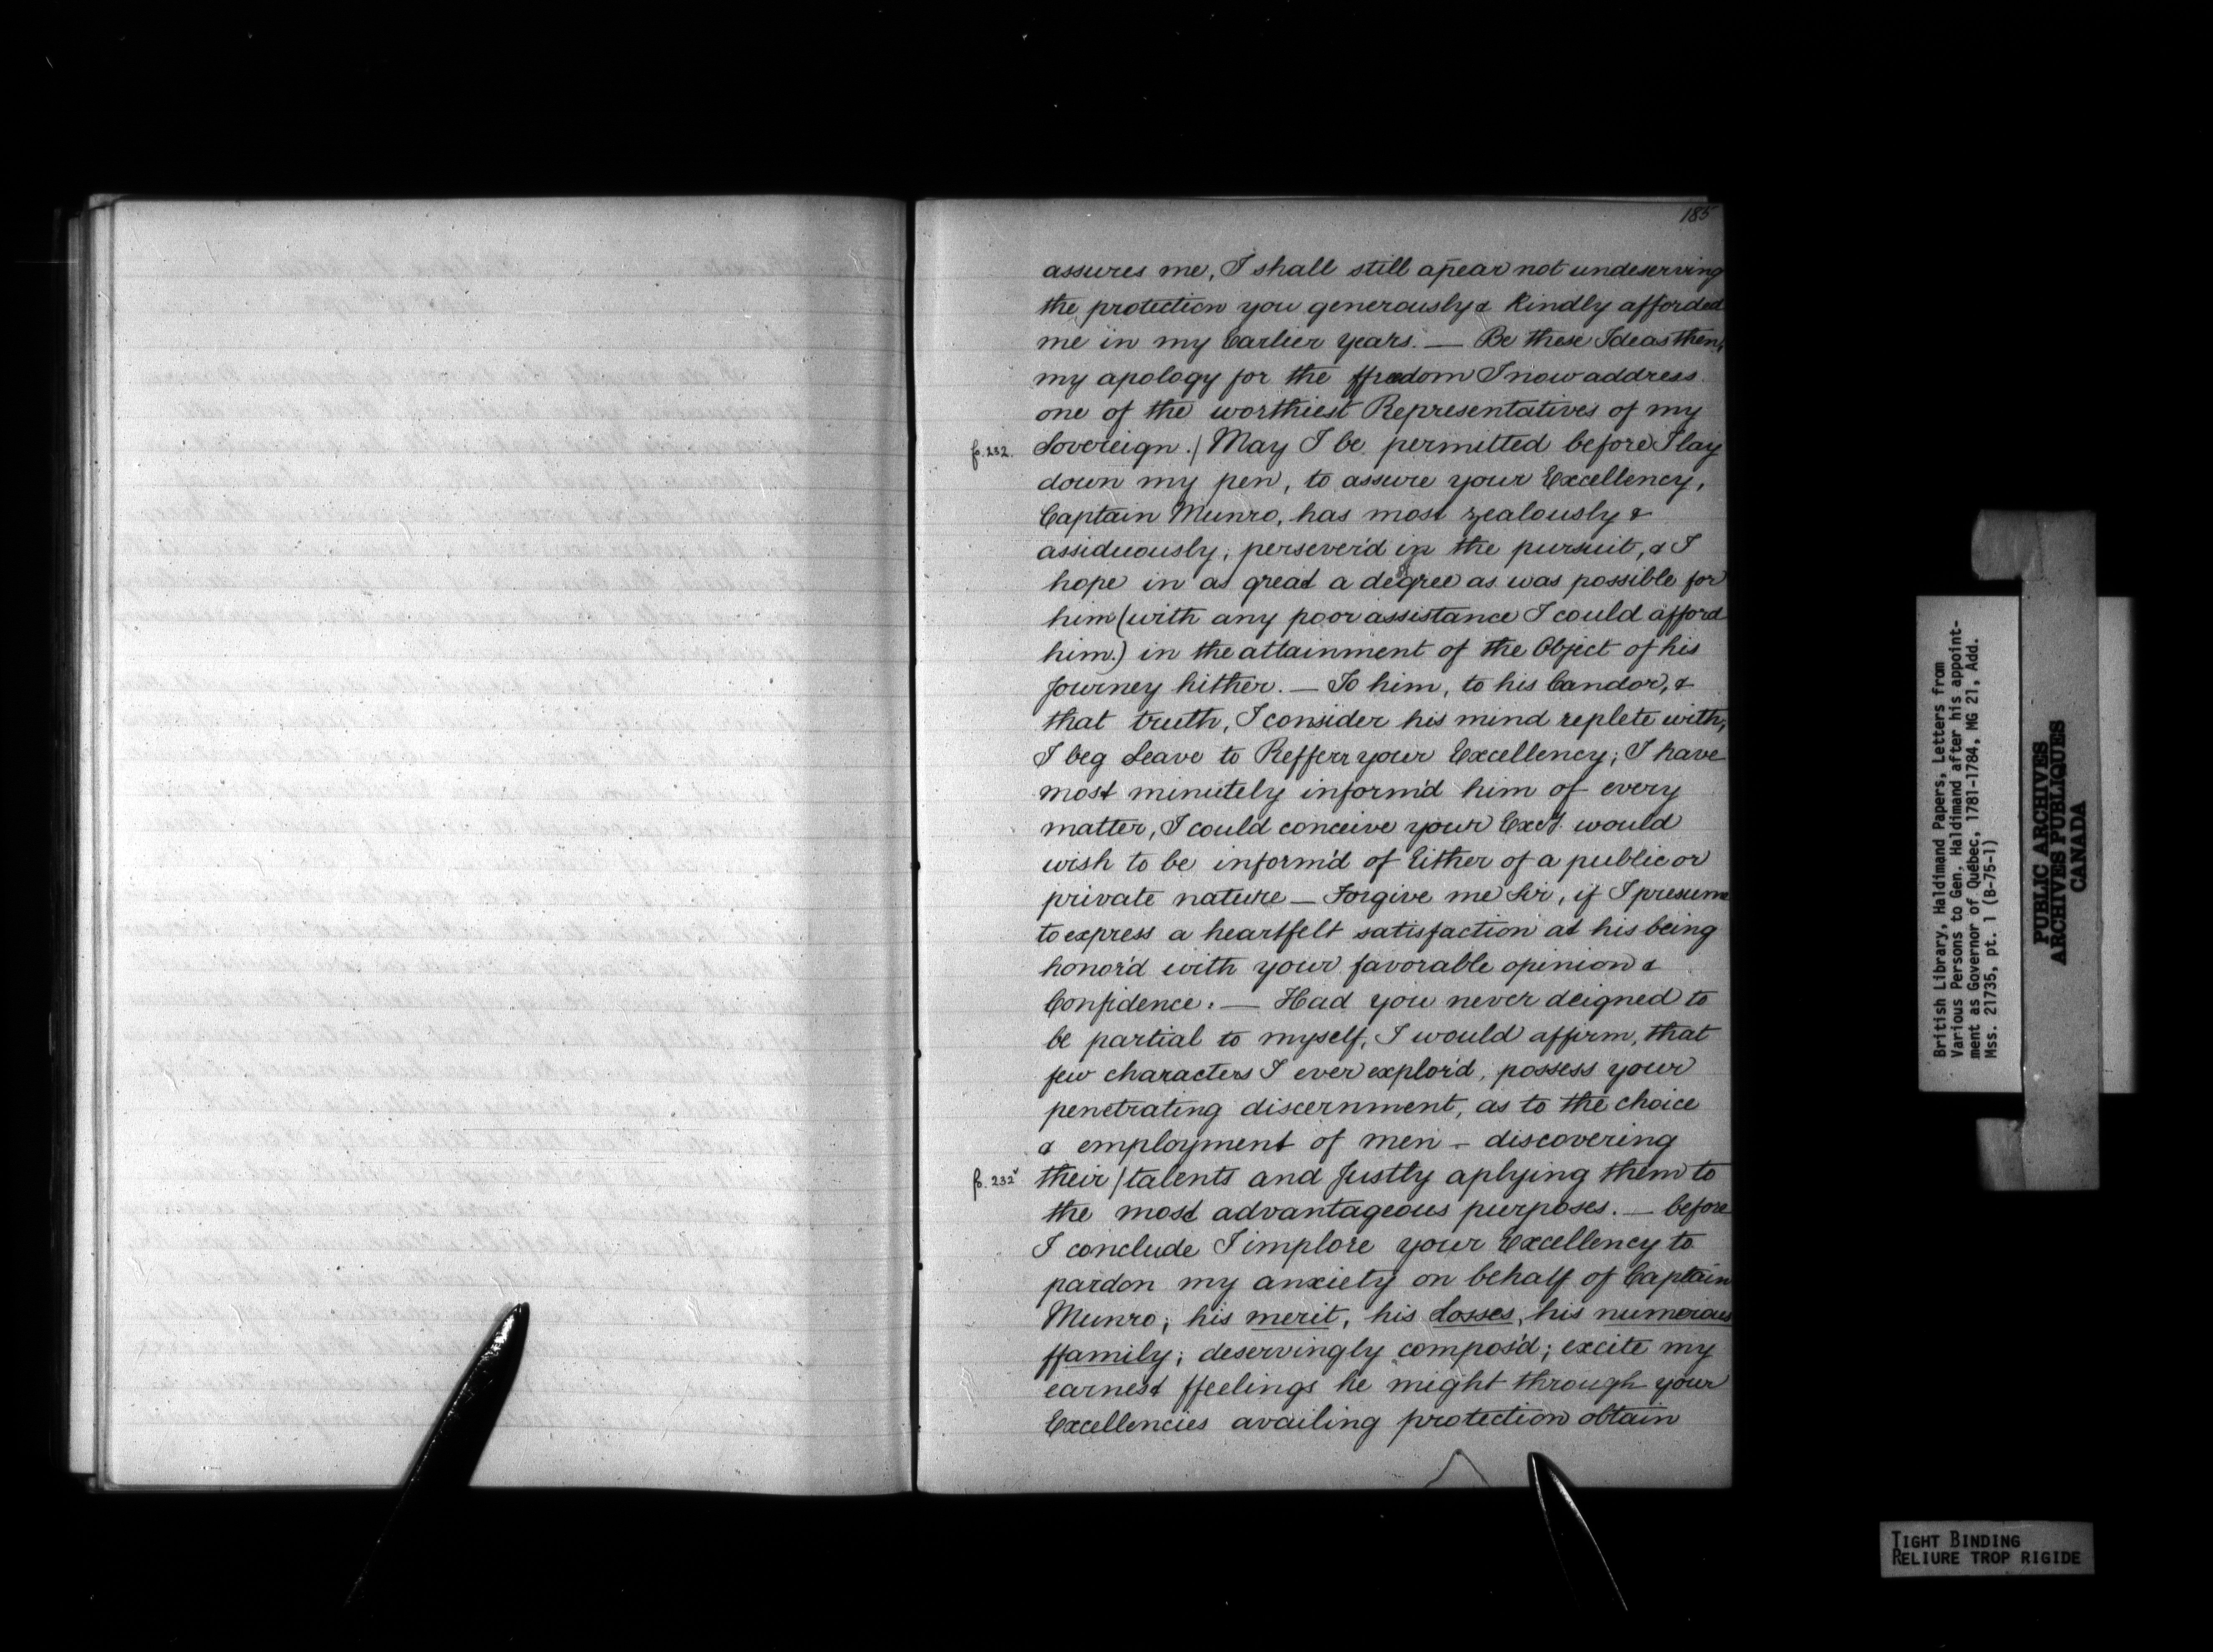 185
assures me, I shall still ap̄ear not undeserving
the protection you generously & Kindly afforded
me in my Earlier years. — Be these Ideas then,
my apology for the ffreedom I now address
one of the worthiest Representatives of my
fo. 232. Sovereign. / May I be permitted before I lay
down my pen, to assure your Excellency,
Captain Munro, has most zealously &
assiduously, persever'd in the pursuit, & I
hope in as great a degree as was possible for
him (with any poor assistance I could afford
him.) in the attainment of the Object of his
Journey hither. — To him, to his Candor, &
that truth, I consider his mind replete with,
I beg Leave to Refferr your Excellency; I have
most minutely inform'd him of every
matter, I could conceive your Excy. would
wish to be inform'd of Either of a public or
private nature — Forgive me Sir, if I presume
to express a heartfelt satisfaction at his being
honor'd with your favorable opinion &
Confidence. — Had you never deigned to
be partial to myself, I would affirm, that
few characters I ever explor'd, possess your
penetrating discernment, as to the choice
& employment of men — discovering
fo. 232v their / talents and Justly aplying them to
the most advantageous purposes. — before
I conclude I implore your Excellency to
pardon my anxiety on behalf of Captain
Munro; his merit, his Losses, his numerous
ffamily; deservingly compos'd; excite my
earnest ffeelings he might through your
Excellencies availing protection obtain
British Library, Haldimand Papers, Letters from
Various Persons to Gen. Haldimand after his appoint-
ment as Governor of Québec, 1781-1784, MG 21, Add.
Mss. 21735, pt. 1 (B-75-1)
PUBLIC ARCHIVES
ARCHIVES PUBLIQUES
CANADA
TIGHT BINDING
RELIURE TROP RIGIDE